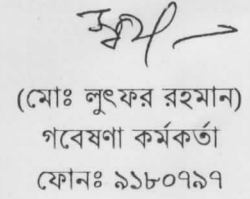 (মোঃ লুৎফর রহমান)
গবেষণা কর্মকর্তা
ফোনঃ ৯১৮০৭৯৭